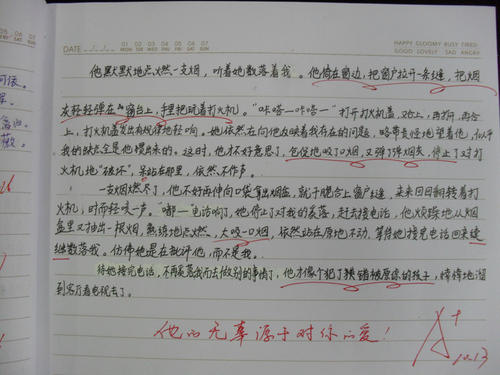 DATE
01 02 03 04 05 06 07
MON TUE WED THU FRI SAT SUN
HAPPY GLOOMY BUSY TIRED
GOOD LOVELY SAD ANGRY
他默默地点燃一支烟，听着她数落着我。他倚在窗边，把窗户拉开一条缝，把烟
灰轻轻弹在窗台上，手里把玩着打火机。"咔嗒—咔嗒—"打开打火机盖，又合上，再打开，再合
上，打火机发出有规律地轻响。她依然在向他反映着我存在的问题，略带责怪地望着他，似乎
我的缺点全是他惯出来的。这时，他不好意思了，急促地吸了口烟，又弹了弹烟灰，停止了对打
火机地"破坏"，呆站在那里，依然不作声。
一支烟燃尽了，他不好再伸向口袋拿出烟盒，就干脆合上窗户缝，来来回回翻转着打
火机，时而轻咳一声。"嘟—"电话响了，她停止了对我的数落，赶去接电话，他火速地从烟
盒里又抽出一根烟，熟练地点燃，大吸一口烟，依然站在原地不动，等待她接完电话回来继
续数落我。仿佛她是在批评他，而不是我。
待她接完电话，不再数落我而去做别的事情了，他才像个犯了错被原谅的孩子，悻悻地溜
到客厅看电视去了。
他的无辜源于对你的爱！
A+
10.13